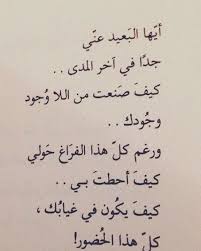 أيّها البَعيد عنّي
جدًا في آخر المدى . .
كيفَ صَنعت من اللا وُجود
وجُودك . .
ورغم كلّ هذا الفرَاغ حَولي
كيفَ أحطتَ بـي . .
كيفَ يكُون في غيابُك ،
كلّ هذا الحُضور!